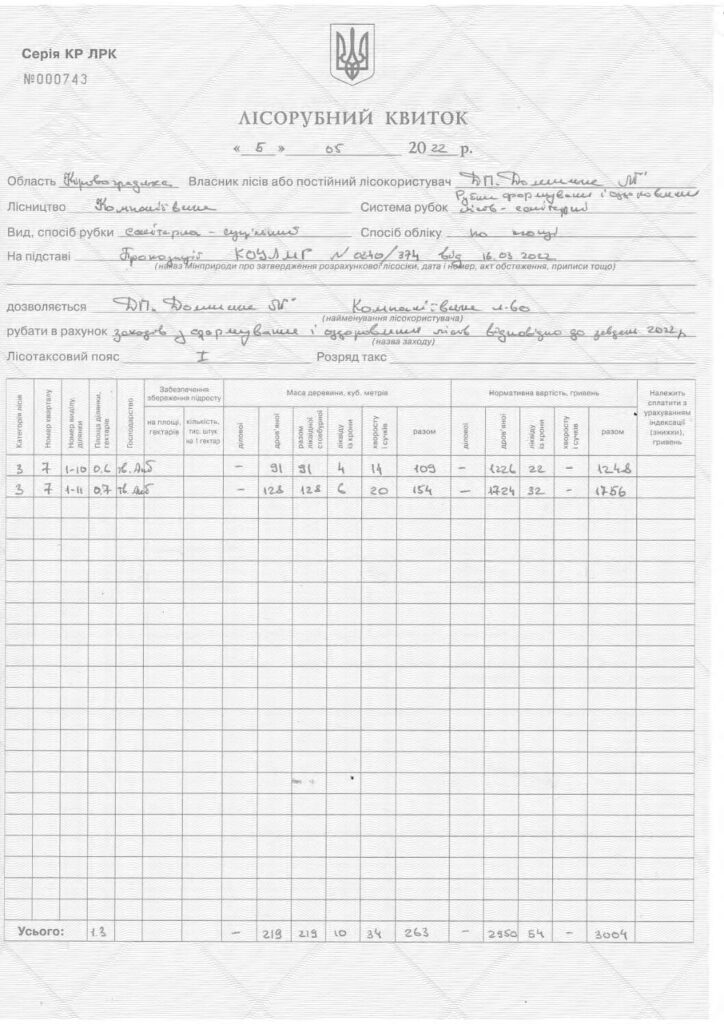 Серія КР ЛРК
№000743
ЛІСОРУБНИЙ КВИТОК
« 5 » 05 2022 р.
Область Кіровоградська Власник лісів або постійний лісокористувач ДП
Рубки формування і оздоровлення
Лісництво Компаніївське Система рубок лісів - санітарні
Вид, спосіб рубки санітарна - суцільний Спосіб обліку по площі
На підставі КОУЛМГ N 0240/374 від 16.03 2022
(назва Мінприроди про затвердження розрахункової лісосіки, дата і номер, акт обстеження, приписи тощо)
дозволяється ДП Компаніївське л-во
(найменування лісокористувача)
рубати в рахунок заходів з формування і оздоровлення лісів відповідно до 2022 р
(назва заходу)
Лісотаксовий пояс I Розряд такс
Категорія лісів Номер кварталу Номер виділу, ділянки Площа ділянки, гектарів Господарство Забезпечення збереження підросту Маса деревини, куб. метрів Нормативна вартість, гривень Належить сплатити з урахуванням індексації (знижки), гривень
на площі, гектарів кількість, тис. штук на 1 гектар ділової дров'яної разом ліквідної стовбурної ліквіду із крони хворосту і сучків разом ділової дров'яної ліквіду із крони хворосту і сучків разом
3 7 1-10 0.6 тв. - 91 91 4 14 109 - 1226 22 - 1248
3 7 1-11 0.7 тв. - 128 128 6 20 154 - 1724 32 - 1756
Усього: 1.3 - 219 219 10 34 263 - 2950 54 - 3004